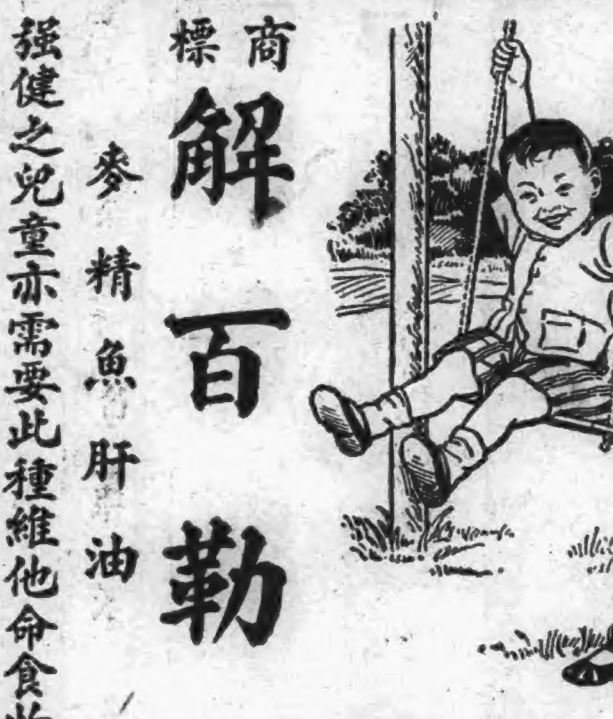 商標
解百勒
麥精魚肝油
强健之兒童亦需要此種維他命食